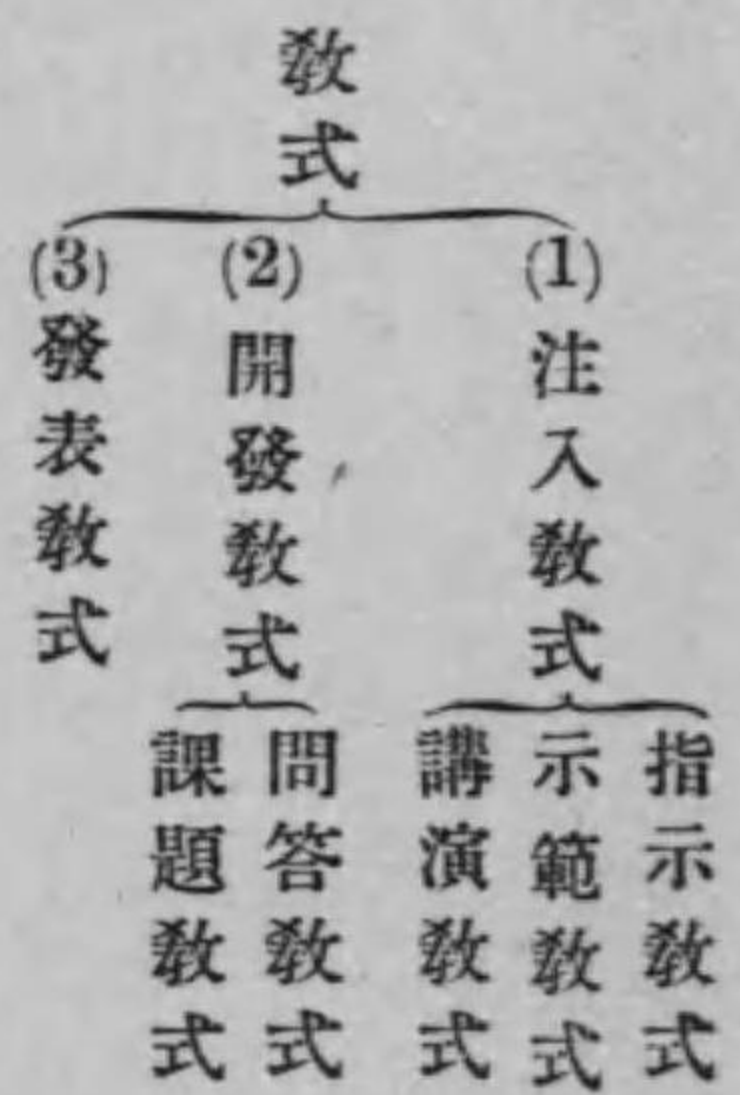 敎式
(1)注入敎式
指示敎式
示範敎式
講演敎式
(2)開發敎式
問答敎式
課題敎式
(3)發表敎式